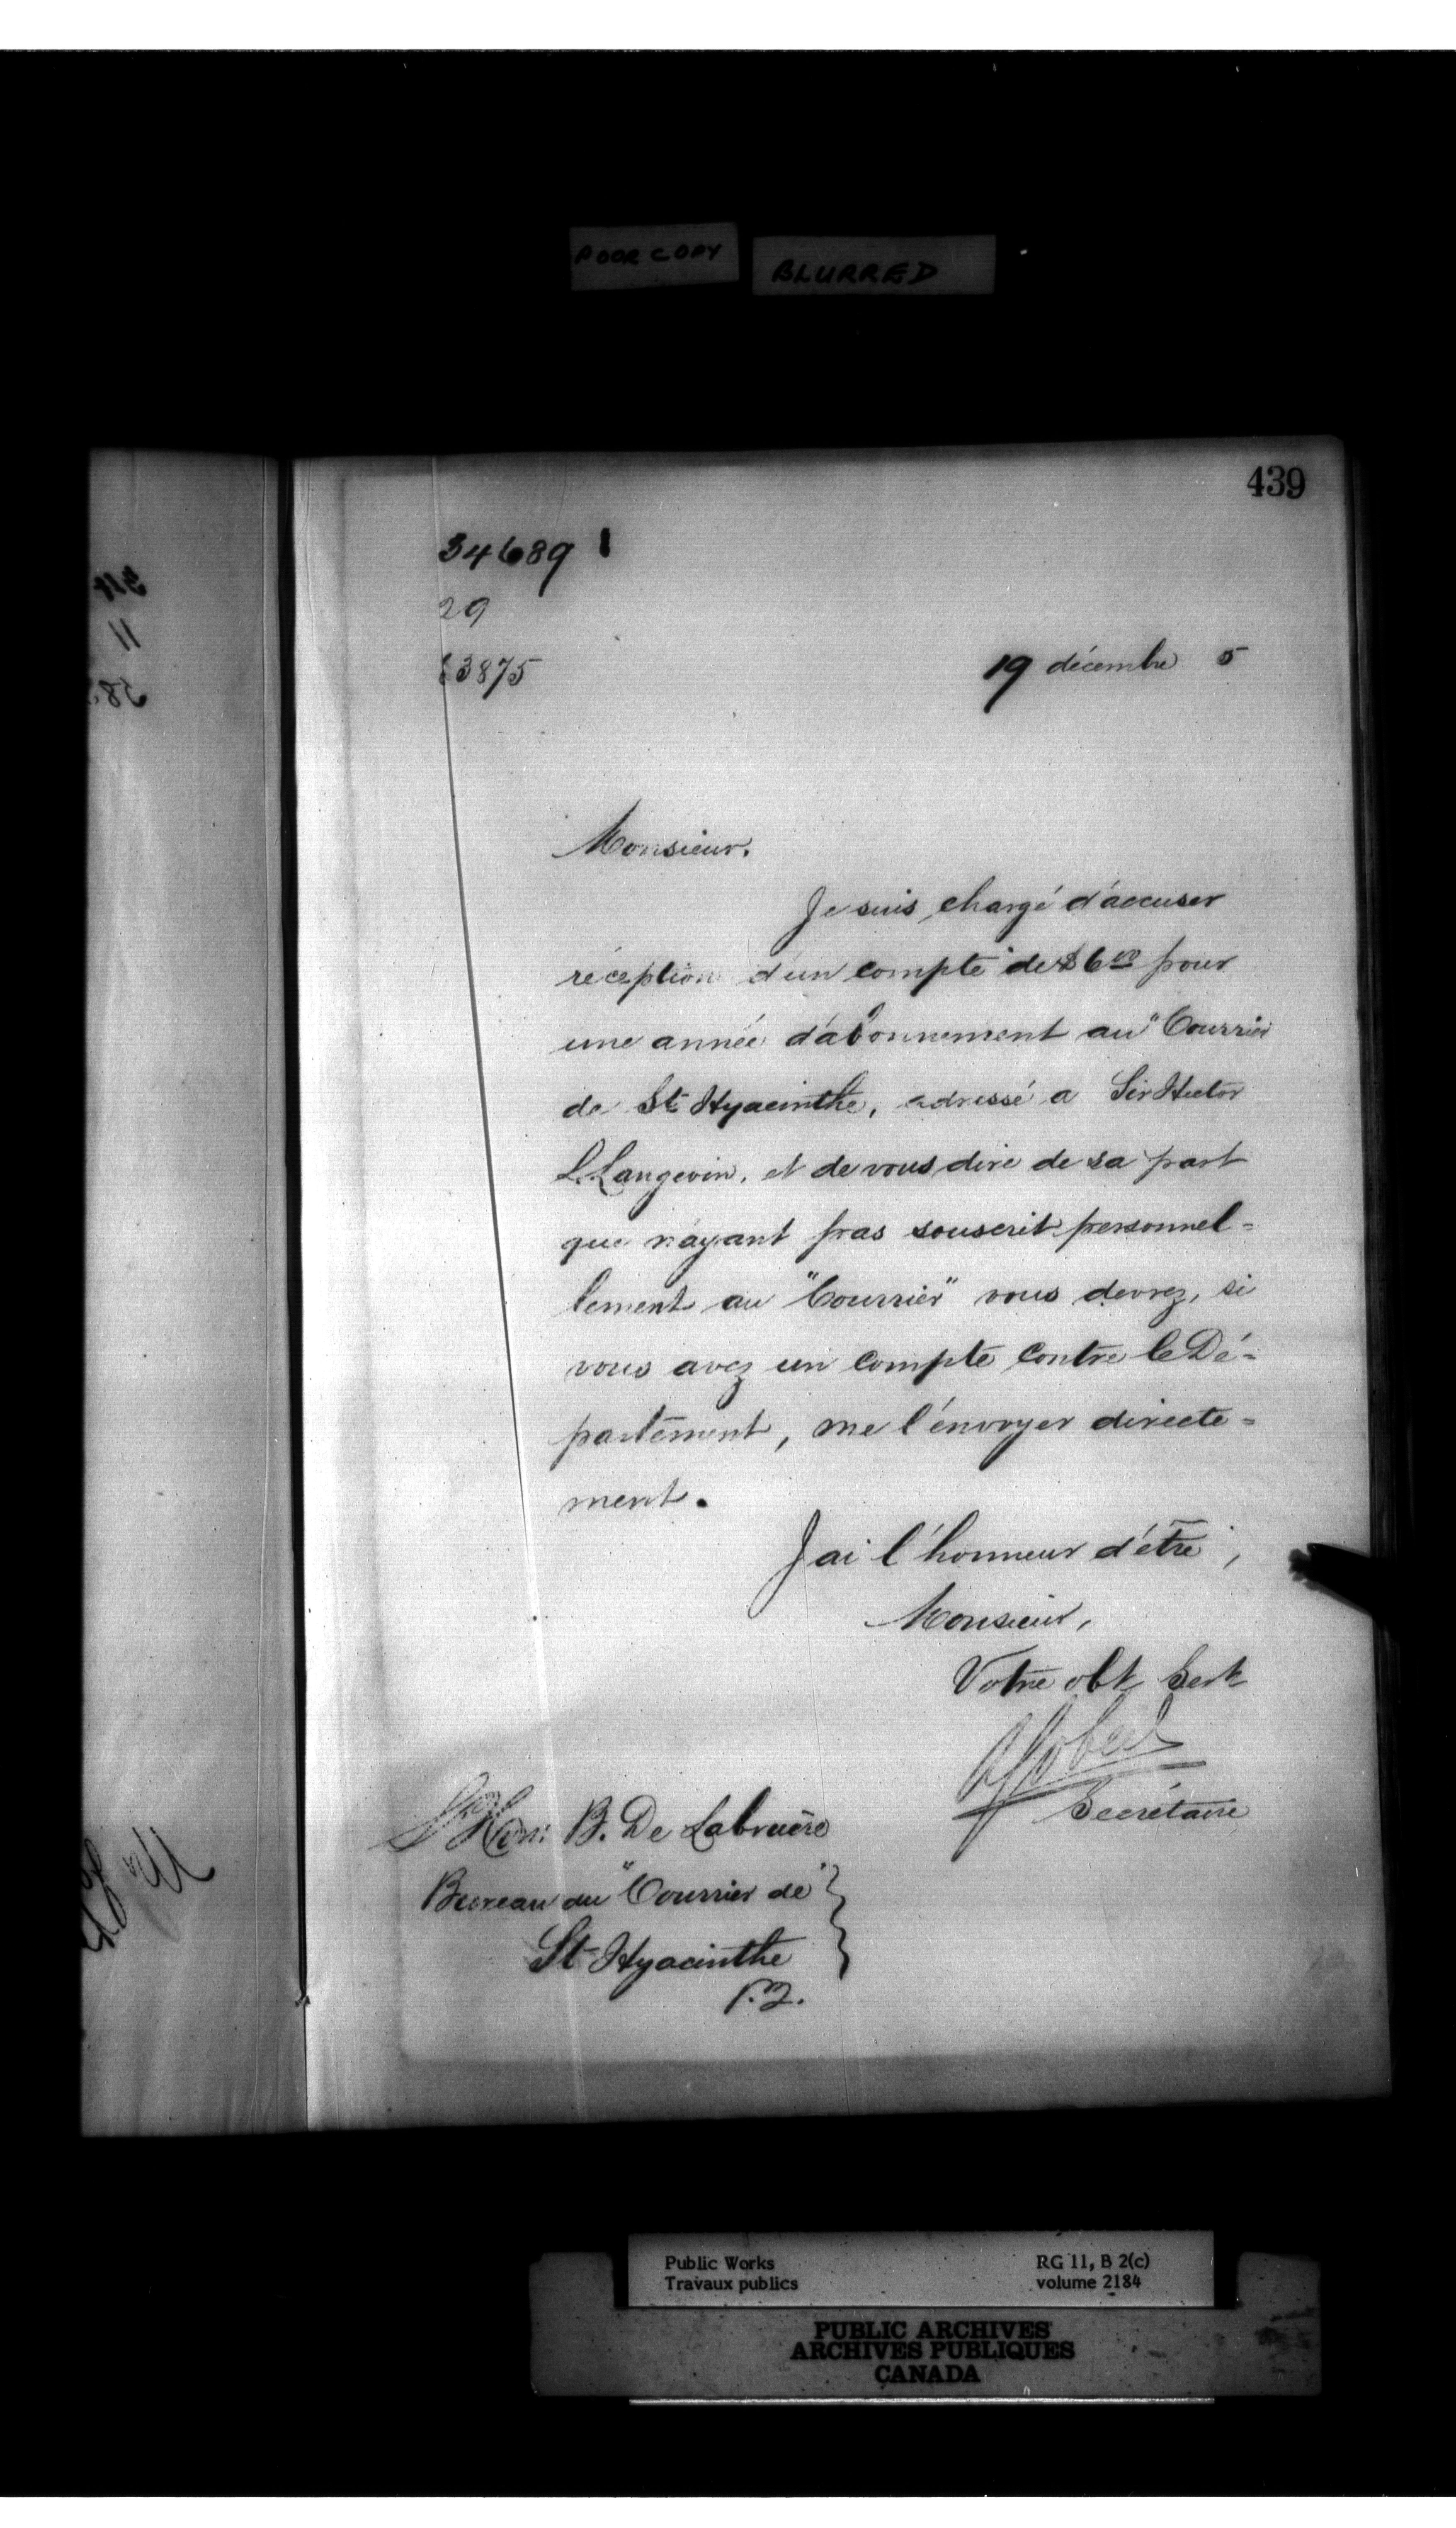 POOR COPY
BLURRED
439
34689
29
63875
19 décembre 5
Monsieur.
Je suis chargé d'accuser
réception d'un compte de $6 00 pour
une année d'abonnement au "Courrier
de St Hyacinthe, adressé a Sir Hector
L. Langevin, et de vous dire de sa part
que n'ayant pas souscrit personnel=
lement au "Courrier" vous devrez, si
vous avez un compte contre le Dé=
partement, me l'envoyer directe=
ment.
J'ai l'honneur d'être,
Monsieur,
Votre obt Servt
A Gobeil
Secrétaire
L'Hon: B. De Labruère
Bureau du "Courrier de"
St Hyacinthe
P.Q.
Public Works
Travaux publics
RG 11, B 2(c)
volume 2184
PUBLIC ARCHIVES
ARCHIVES PUBLIQUES
CANADA